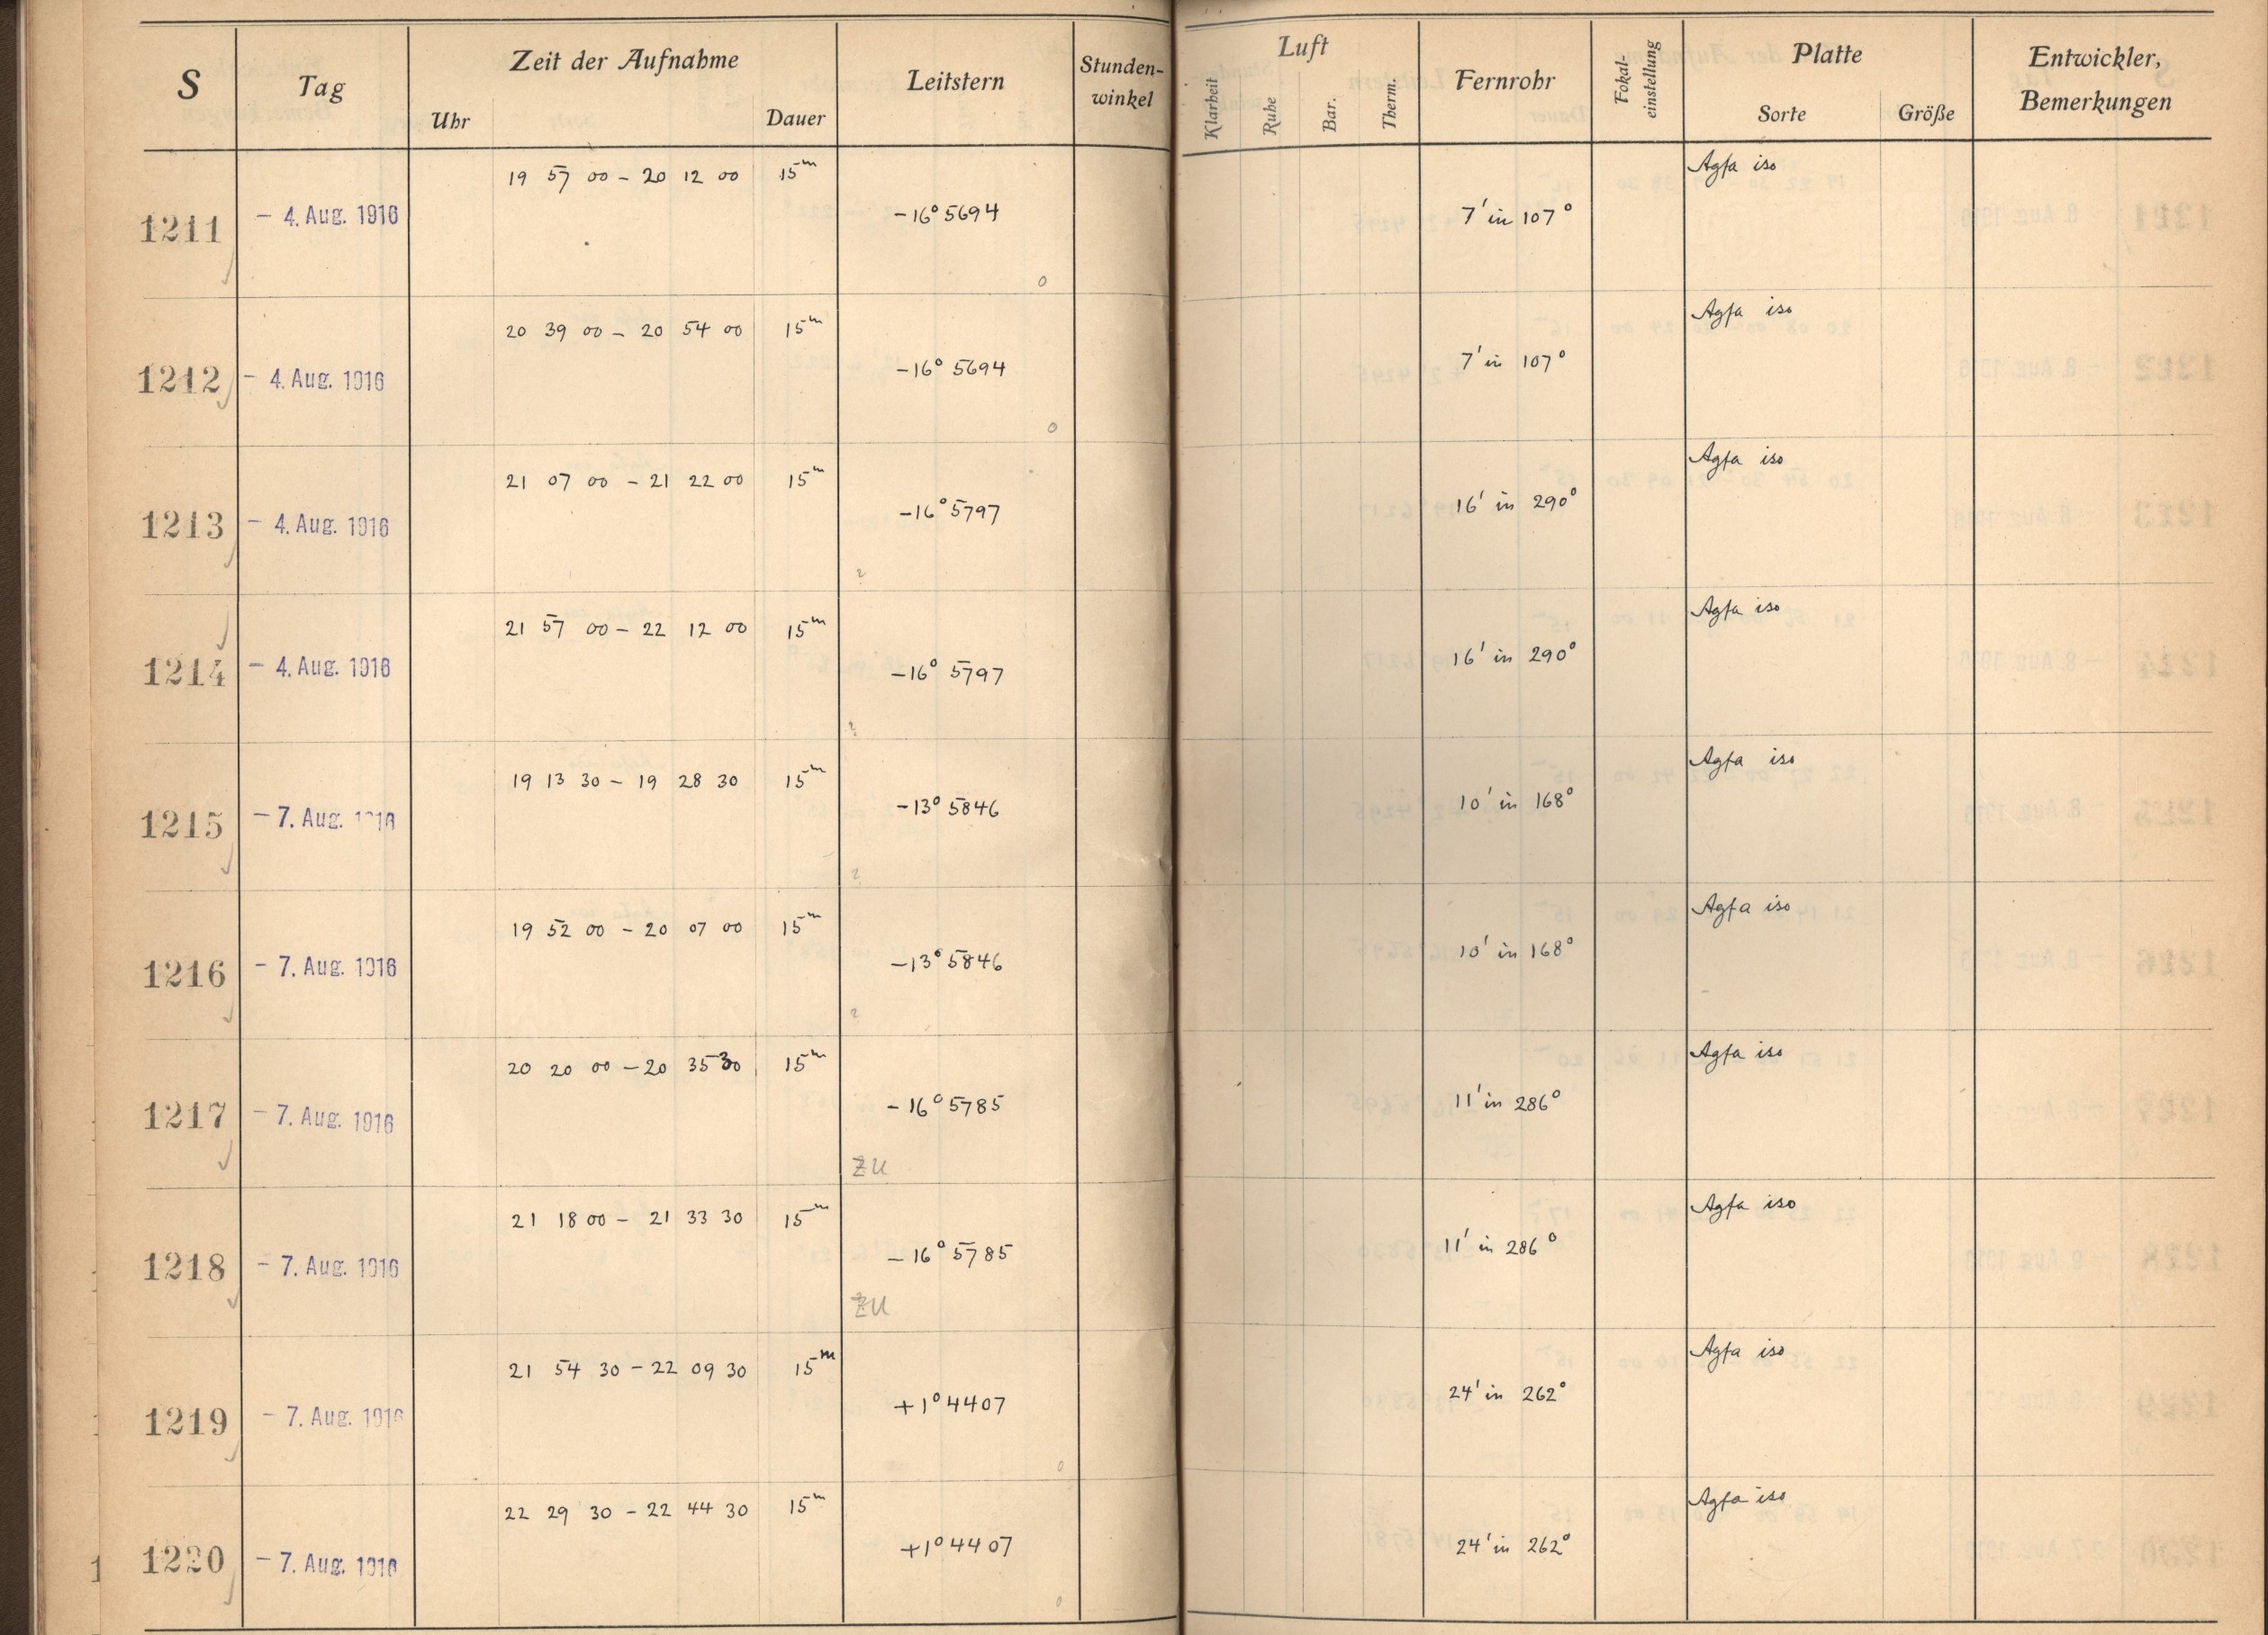 S Tag Zeit der Aufnahme Leitstern Stunden-winkel Luft Fernrohr Fokal-einstellung Platte Entwickler, Bemerkungen
Uhr Dauer Klarheit Ruhe Bar. Therm. Sorte Größe
1211 – 4. Aug. 1916 19 57 00 – 20 12 00 15m –16° 5694 7' in 107° Agfa iso
0
1212 – 4. Aug. 1916 20 39 00 – 20 54 00 15m –16° 5694 7' in 107° Agfa iso
0
1213 – 4. Aug. 1916 21 07 00 – 21 22 00 15m –16° 5797 16' in 290° Agfa iso
?
1214 – 4. Aug. 1916 21 57 00 – 22 12 00 15m –16° 5797 16' in 290° Agfa iso
?
1215 – 7. Aug. 1916 19 13 30 – 19 28 30 15m –13° 5846 10' in 168° Agfa iso
?
1216 – 7. Aug. 1916 19 52 00 – 20 07 00 15m –13° 5846 10' in 168° Agfa iso
?
1217 – 7. Aug. 1916 20 20 00 – 20 35 30 15m –16° 5785 11' in 286° Agfa iso
ZU
1218 – 7. Aug. 1916 21 18 00 – 21 33 30 15m –16° 5785 11' in 286° Agfa iso
ZU
1219 – 7. Aug. 1916 21 54 30 – 22 09 30 15m +1° 4407 24' in 262° Agfa iso
0
1220 – 7. Aug. 1916 22 29 30 – 22 44 30 15m +1° 4407 24' in 262° Agfa iso
0